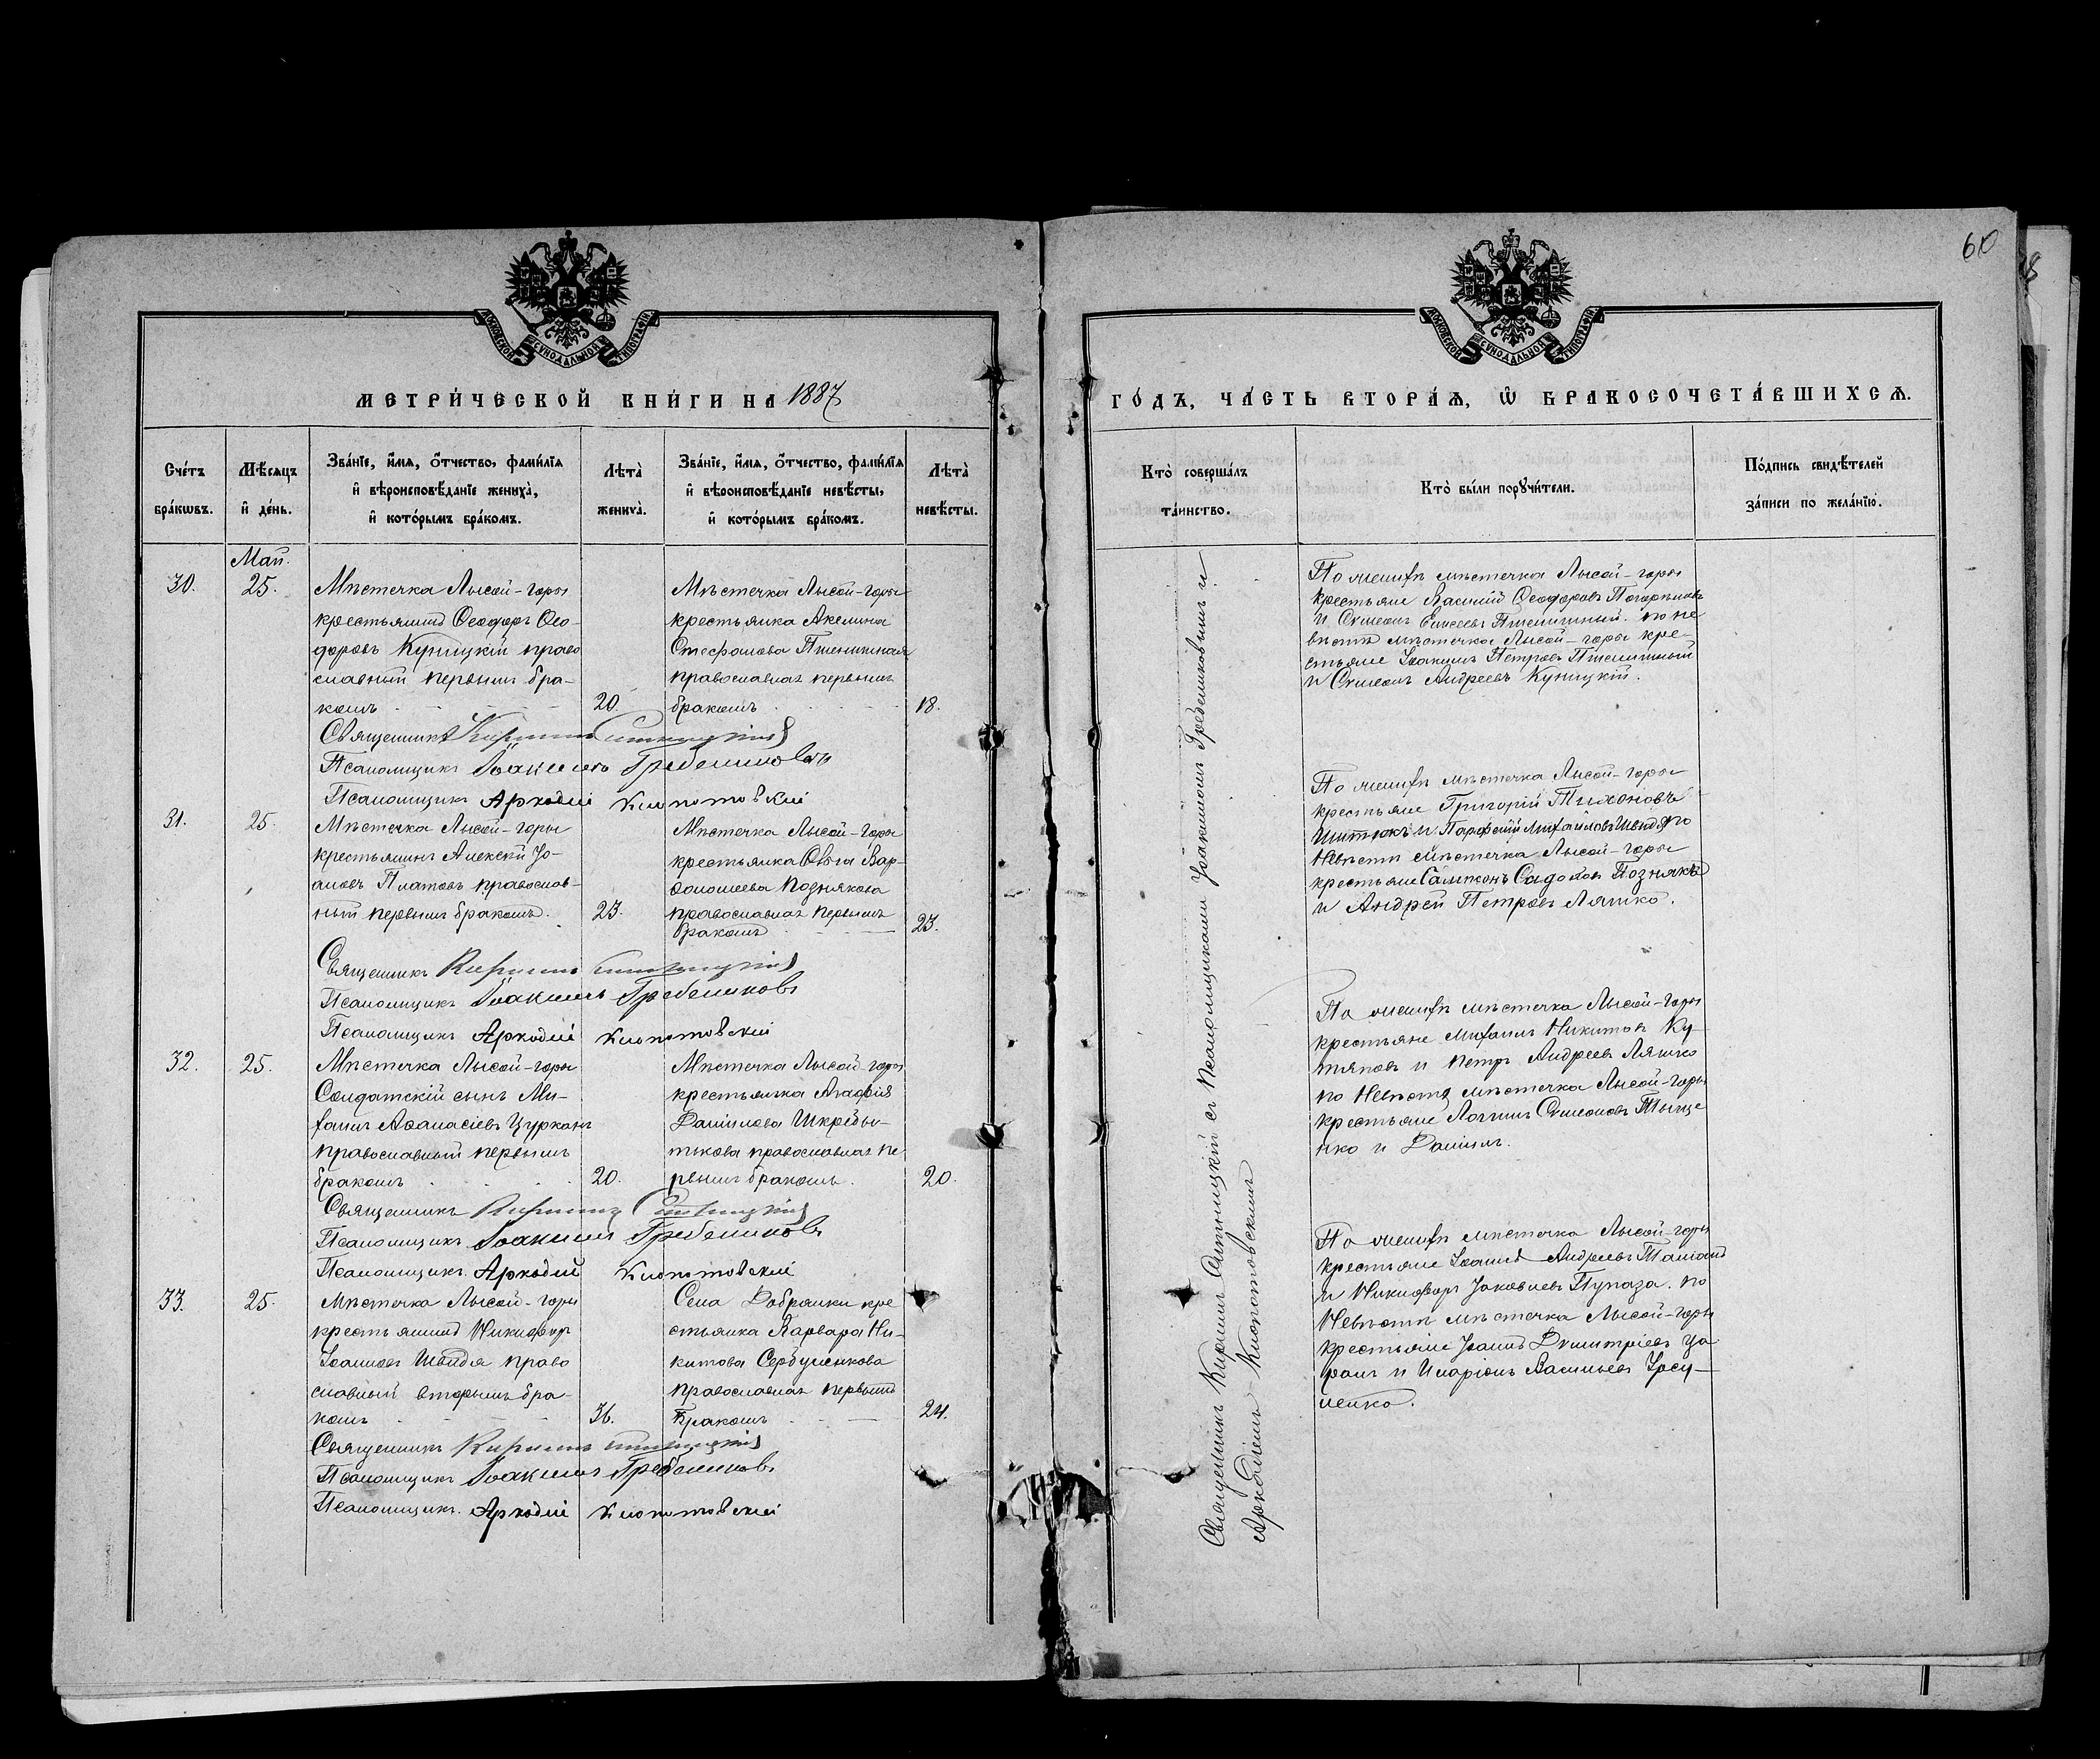 МОСКОВСКОЙ СѴНОДАЛЬНОЙ ТИПОГРАФІИ
МЕТРИ́ЧЕСКОЙ КНИ́ГИ НА 1887
Сче́тъ бра́кѡвъ.
Мѣ́сяцъ и҆ де́нь.
Зва́нїе, и҆́мя, ѻ҆́тчество, фами́лїя
и҆ вѣроисповѣ́данїе жениха̀,
и҆ кото́рымъ бра́комъ.
Лѣта̀ жениха̀.
Зва́нїе, и҆́мя, ѻ҆́тчество, фами́лїя
и҆ вѣроисповѣ́данїе невѣ́сты,
и҆ кото́рымъ бра́комъ.
Лѣта̀ невѣ́сты.
Май.
30.
25.
Мѣстечка Лысой-горы
крестьянинъ Ѳеодоръ Ѳео-
доровъ Куницкій право
славный первымъ бра-
комъ
20.
Мѣстечка Лысой-горы
крестьянка Акелина
Стефанова Пшеничная
православная первымъ
бракомъ
18.
Священникъ Кириллъ
Псаломщикъ Іоакимъ Гребенниковъ
Псаломщикъ Аркадій Клопотовскій
31.
25.
Мѣстечка Лысой-горы
крестьянинъ Алексѣй Іо-
анновъ Платовъ православ-
ный первымъ бракомъ.
23.
Мѣстечка Лысой-горы
крестьянка Ольга Вар-
ѳоломеева Познякова
православная первымъ
бракомъ
23.
Священникъ Кириллъ
Псаломщикъ Іоакимъ Гребенниковъ
Псаломщикъ Аркадій Клопотовскій
32.
25.
Мѣстечка Лысой-горы
Солдатскій сынъ Ми-
хаилъ Аѳанасіевъ Цурканъ
православный первымъ
бракомъ
20.
Мѣстечка Лысой-горы
крестьянка Агафія
Даніилова Шкребы-
тькова православная пе
рвымъ бракомъ.
20.
Священникъ Кириллъ
Псаломщикъ Іоакимъ Гребенниковъ
Псаломщикъ. Аркадій Клопотовскій
33.
25.
Мѣстечка Лысой-горы
крестьянинъ Никифоръ
Іоанновъ Швидя право
славный вторымъ бра-
комъ
36.
Села Добрянки кре
стьянка Варвара Ни-
китова Сербуленкова
православная первымъ
бракомъ
24.
Священникъ Кириллъ
Псаломщикъ Іоакимъ Гребенниковъ
Псаломщикъ. Аркадій Клопотовскій
60
МОСКОВСКОЙ СѴНОДАЛЬНОЙ ТИПОГРАФІИ
ГО́ДЪ, ЧА́СТЬ ВТОРА́Ѧ, Ѡ҆ БРАКОСОЧЕТА́ВШИХСѦ.
Кто̀ соверша́лъ
та́инство.
Кто̀ бы́ли порꙋчи́тели.
По́дпись свидѣ́телей
за́писи по жела́нїю.
Священникъ Кириллъ Ситницкій съ Псаломщиками Іоакимомъ Гребенниковымъ и
Аркадіемъ Клопотовскимъ
По женихѣ мѣстечка Лысой-горы
крестьяне Василій Ѳеодоровъ
и Симеонъ Елисеевъ Пшеничный. по не
вѣстѣ мѣстечка Лысой-горы кре-
стьяне Іоакимъ Петровъ Пшеничный
и Симеонъ Андреевъ Куницкій.
По женихѣ мѣстечка Лысой-горы
крестьяне Григорій Тихоновъ
Шитюкъ и Парфеній Михайловъ Швидя по
невѣстѣ мѣстечка Лысой-горы
крестьяне Сампсонъ Садоковъ Познякъ
и Андрей Петровъ Ляшко.
По женихѣ мѣстечка Лысой-горы
крестьяне Михаилъ Никитовъ Ку-
тяповъ и Петръ Андреевъ Ляшко
по невѣстѣ мѣстечка Лысой-горы
крестьяне Логгинъ Симеоновъ Тыще
нко и Даніилъ.
По женихѣ мѣстечка Лысой-горы
крестьяне Іоаннъ Андреевъ
и Никифоръ Іаковлевъ Пугаза. по
невѣстѣ мѣстечка Лысой-горы
крестьяне Іоаннъ Димитріевъ Ца
ранъ и Иларіонъ Васильевъ
ненко.